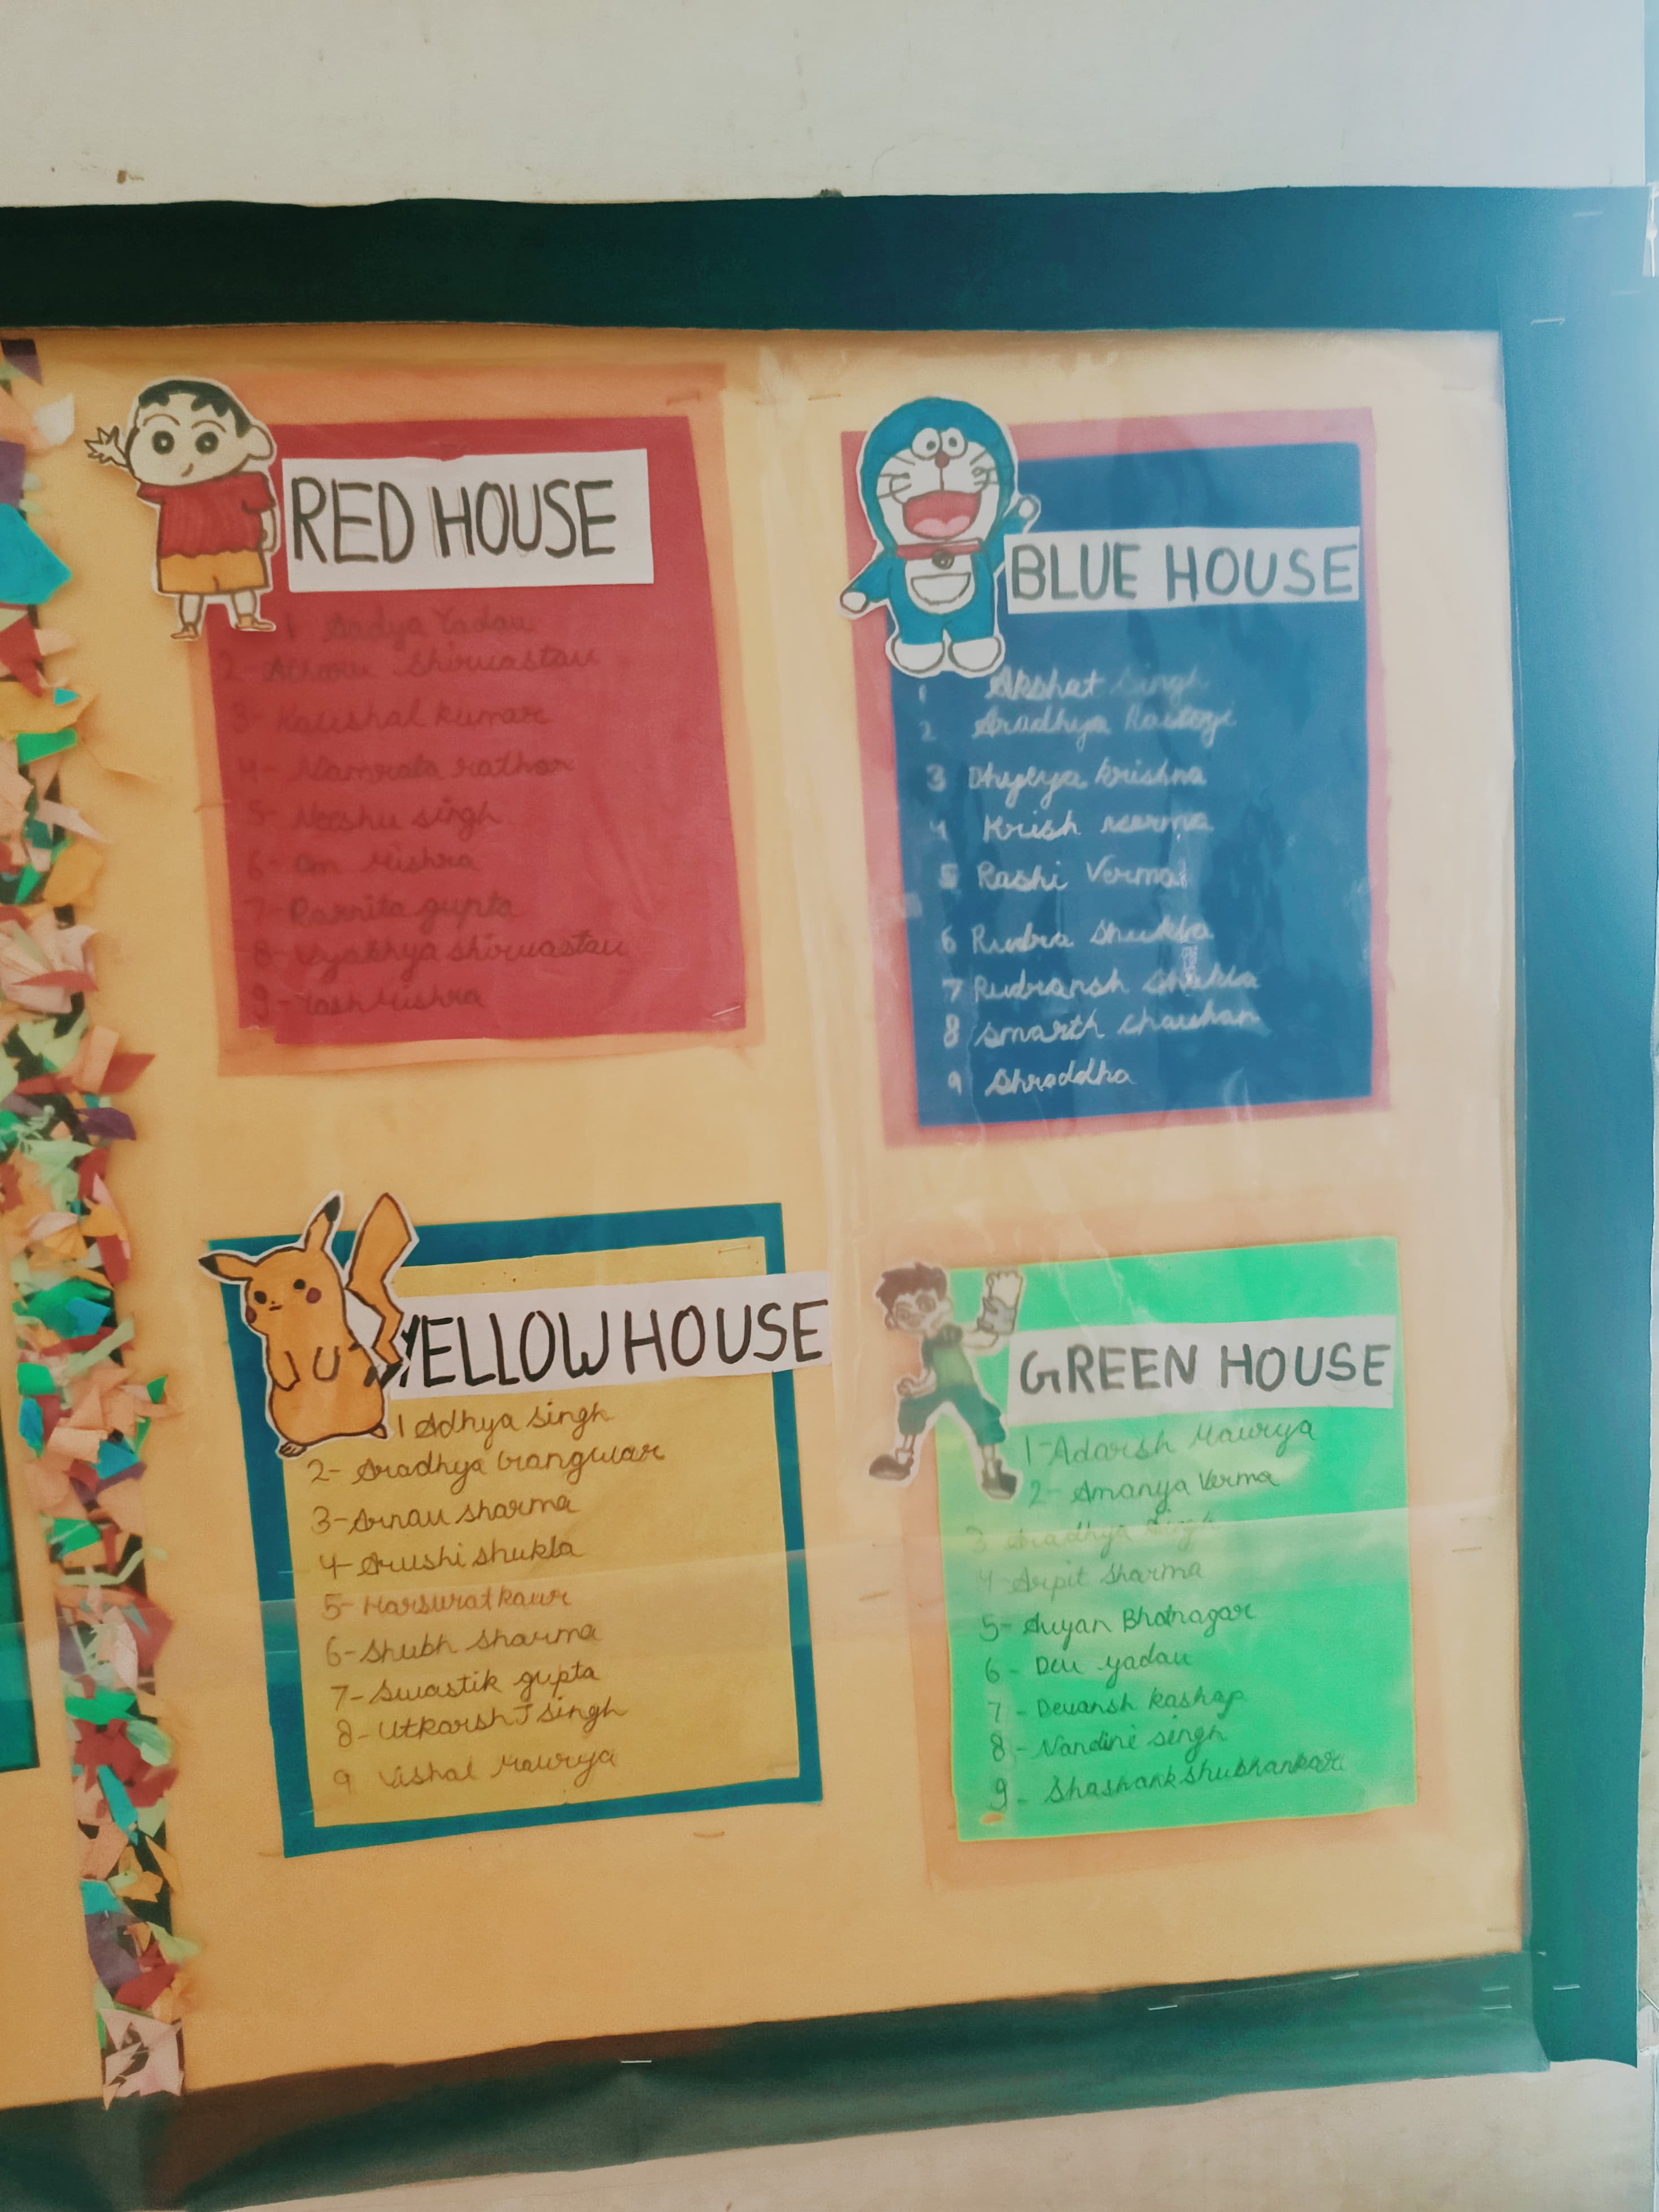 RED HOUSE
1 Aadya Yadav
2- Shirvastav
3- Kaushal kumar
4- Namrata rathor
5- Neeshu singh
6- Om Mishra
7- gupta
8- Vyakhya shirvastav
9- Yash Mishra
BLUE HOUSE
1 Akshat Singh
2 Aradhya Rastogi
3 krishna
4 Krish verma
5 Rashi Verma
6 Rudra Shukla
7 Rudransh Shukla
8 Smarth chauhan
9 Shraddha
YELLOW HOUSE
1 Adhya singh
2- Aradhya Gangwar
3- Arnav sharma
4- Arushi shukla
5- Harsurat kaur
6- Shubh Sharma
7- Swastik gupta
8- Utkarsh J singh
9 Vishal Maurya
GREEN HOUSE
1- Adarsh Maurya
2- Amanya Verma
3 Aradhya Singh
4 Arpit Sharma
5- Auyan Bhatnagar
6- Dev yadav
7- Devansh kashap
8- Nandini singh
9- Shashank shubhankar